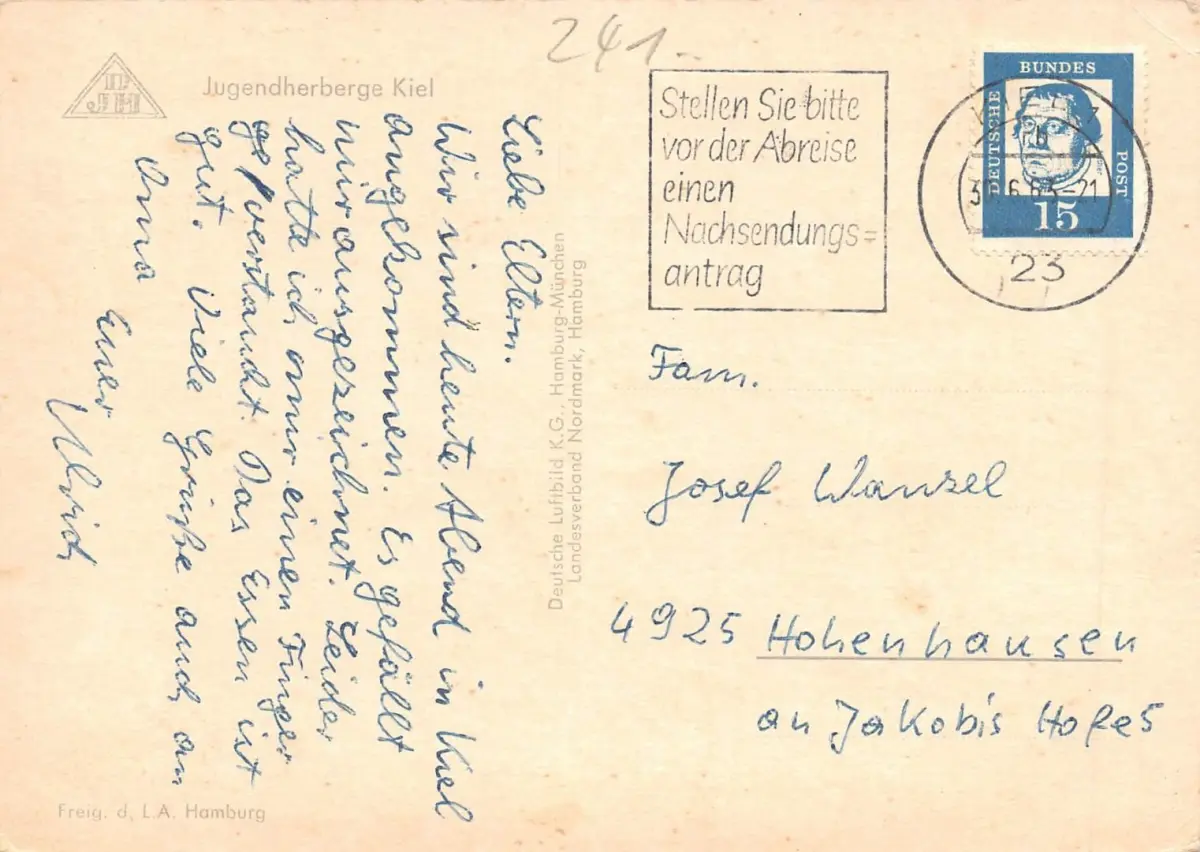 241
DJH
Jugendherberge Kiel
Liebe Eltern.
Wir sind heute Abend in Kiel
angekommen. Es gefällt
mir ausgezeichnet. Leider
hatte ich mir einen Finger
verstaucht. Das Essen ist
gut. Viele Grüße auch an
Oma
Euer
Ulrich
Freig. d. L.A. Hamburg
Deutsche Luftbild K.G., Hamburg-München
Landesverband Nordmark, Hamburg
Stellen Sie bitte
vor der Abreise
einen
Nachsendungs=
antrag
DEUTSCHE
BUNDES
POST
15
KIEL
23
Fam.
Josef Wanzel
4925 Hohenhausen
an Jakobis Hofe 5